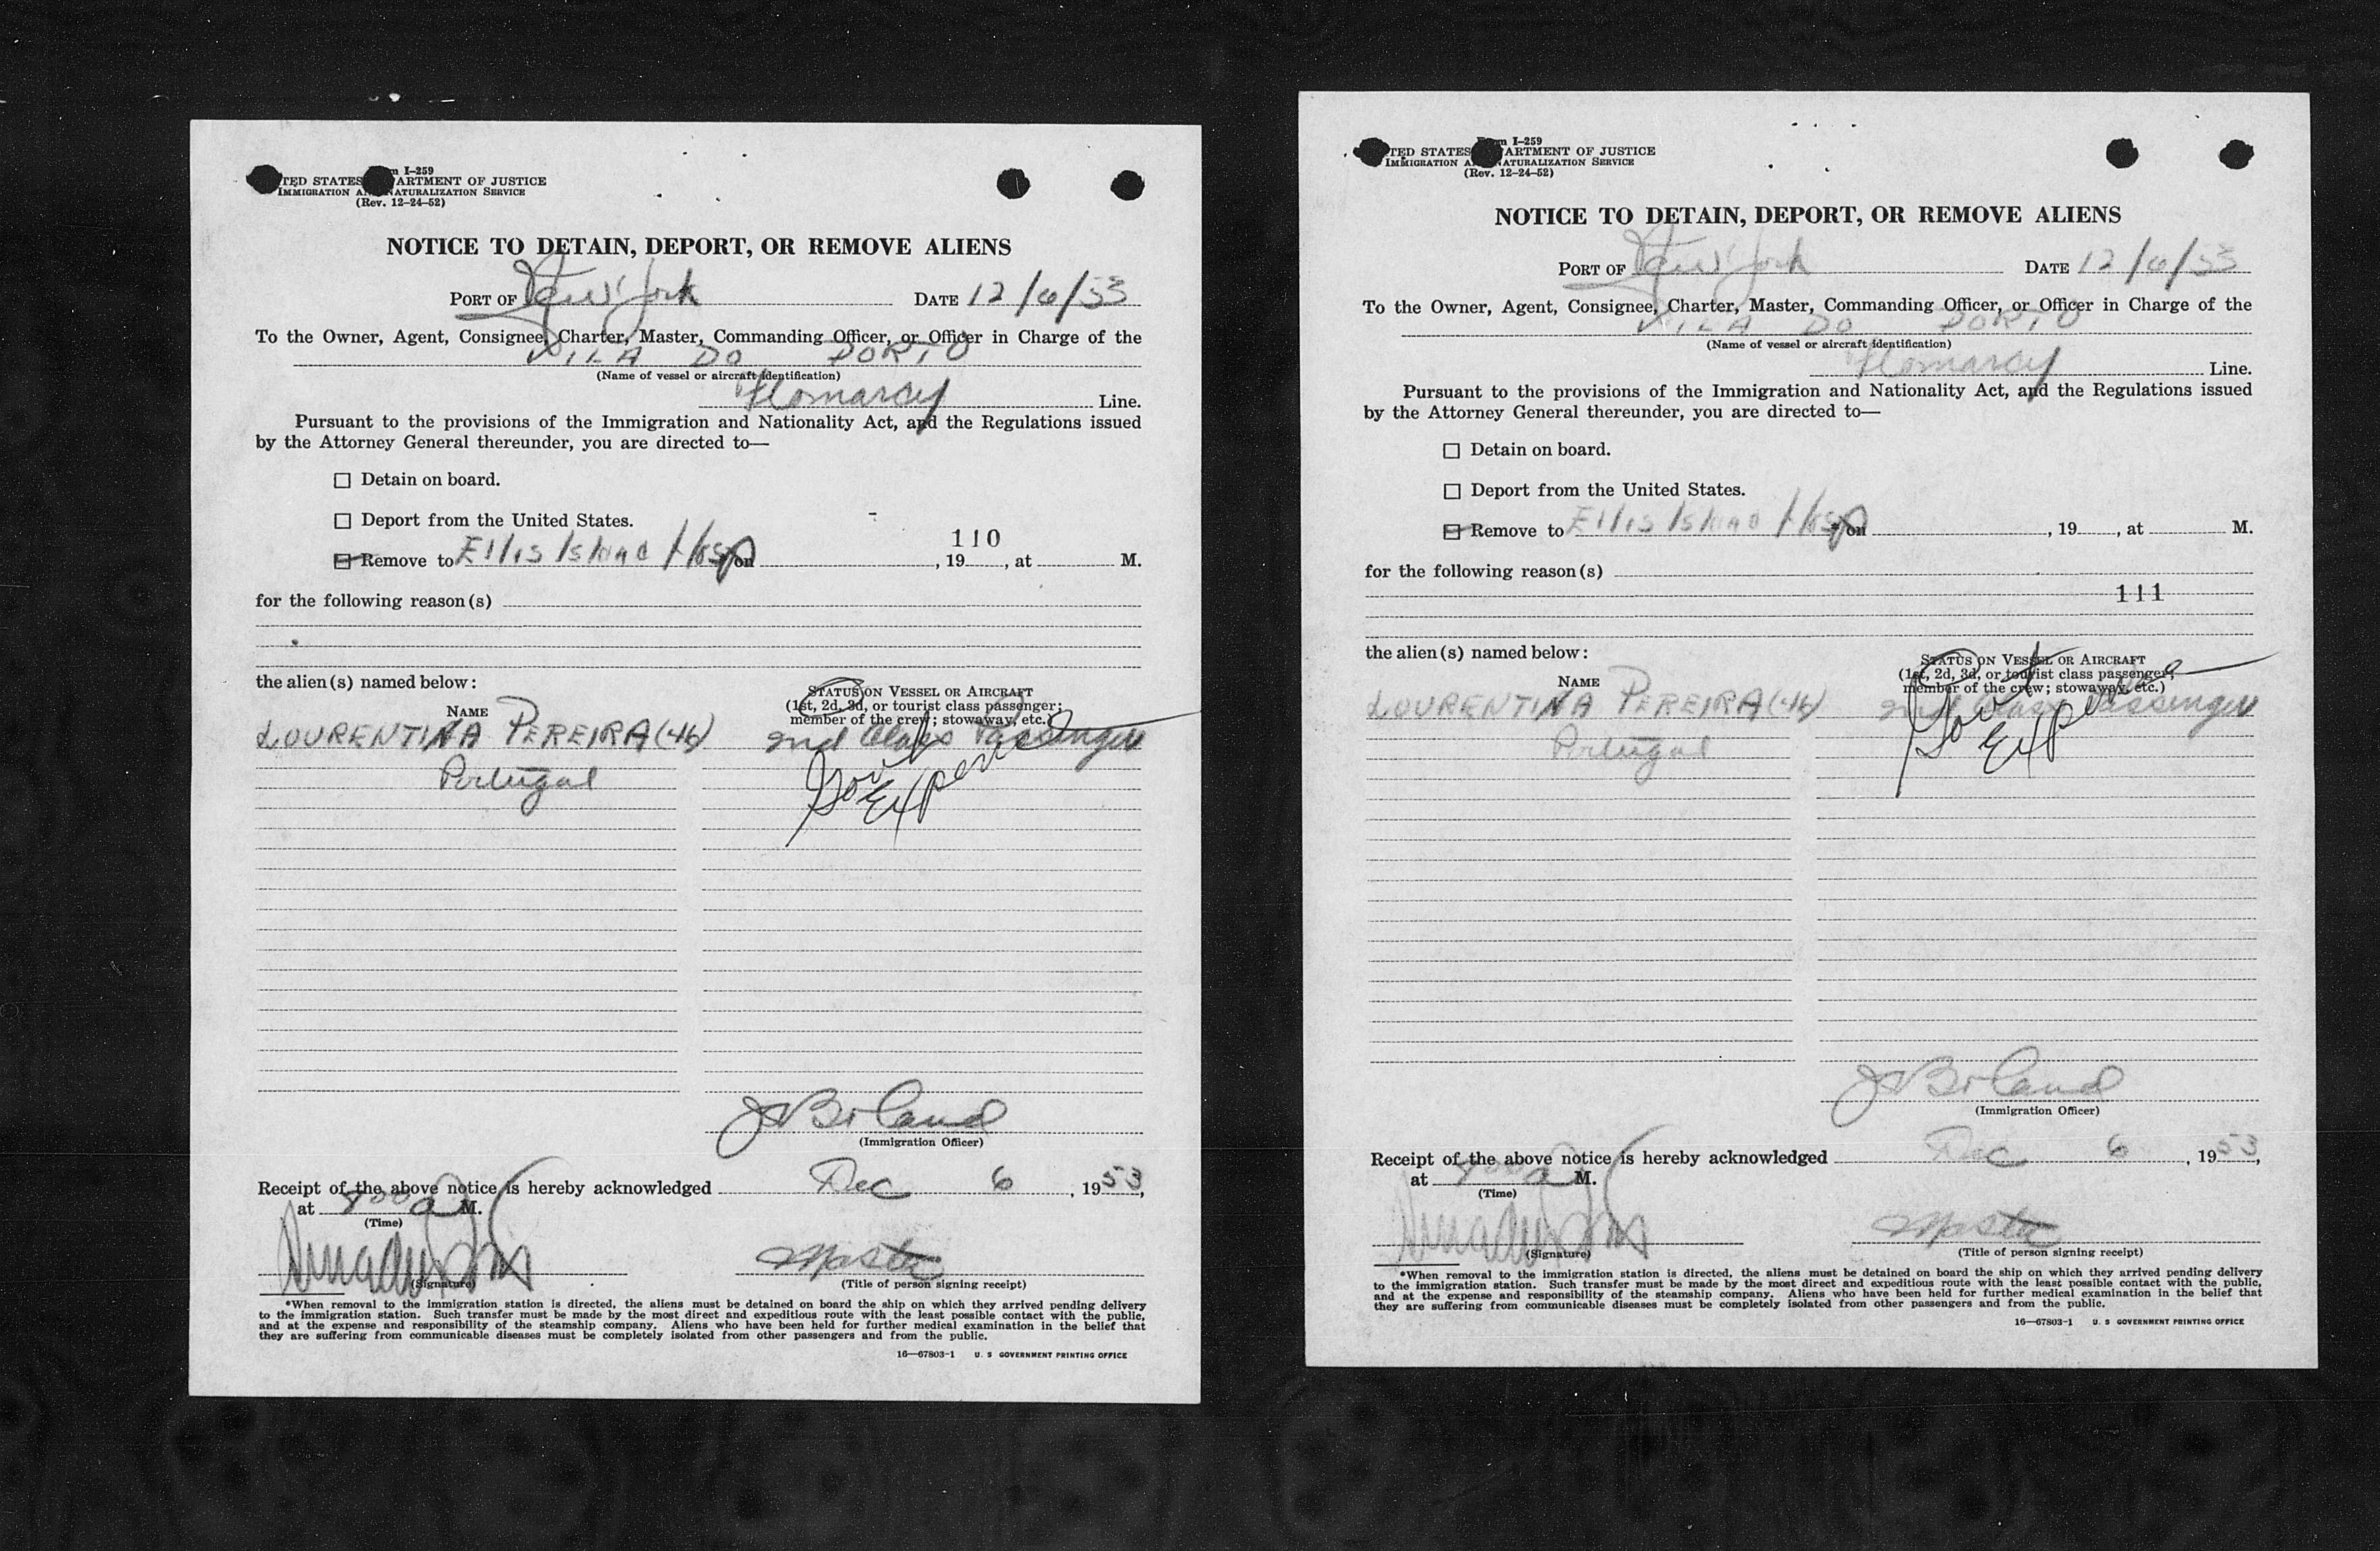 m I-259
TED STATES ARTMENT OF JUSTICE
IMMIGRATION A NATURALIZATION SERVICE
(Rev. 12-24-52)
NOTICE TO DETAIN, DEPORT, OR REMOVE ALIENS
PORT OF New York DATE 12/6/53
To the Owner, Agent, Consignee, Charter, Master, Commanding Officer, or Officer in Charge of the
VILA DO PORTO
(Name of vessel or aircraft identification)
Flomarcy Line.
Pursuant to the provisions of the Immigration and Nationality Act, and the Regulations issued
by the Attorney General thereunder, you are directed to—
Detain on board.
Deport from the United States.
110
Remove to Ellis Island Hosp *on , 19 , at M.
for the following reason(s)
the alien(s) named below:
NAME
STATUS ON VESSEL OR AIRCRAFT
(1st, 2d, 3d, or tourist class passenger;
member of the crew; stowaway, etc.)
LOURENTINA PEREIRA (46) 2nd Class Passenger
Portugal
Govt
Expense
J Boland
(Immigration Officer)
Receipt of the above notice is hereby acknowledged Dec 6, 1953,
at 900 a M.
(Time)
Master
(Signature) (Title of person signing receipt)
*When removal to the immigration station is directed, the aliens must be detained on board the ship on which they arrived pending delivery
to the immigration station. Such transfer must be made by the most direct and expeditious route with the least possible contact with the public,
and at the expense and responsibility of the steamship company. Aliens who have been held for further medical examination in the belief that
they are suffering from communicable diseases must be completely isolated from other passengers and from the public.
16—67803-1 U. S GOVERNMENT PRINTING OFFICE
m I-259
TED STATES ARTMENT OF JUSTICE
IMMIGRATION A NATURALIZATION SERVICE
(Rev. 12-24-52)
NOTICE TO DETAIN, DEPORT, OR REMOVE ALIENS
PORT OF New York DATE 12/6/53
To the Owner, Agent, Consignee, Charter, Master, Commanding Officer, or Officer in Charge of the
VILA DO PORTO
(Name of vessel or aircraft identification)
Flomarcy Line.
Pursuant to the provisions of the Immigration and Nationality Act, and the Regulations issued
by the Attorney General thereunder, you are directed to—
Detain on board.
Deport from the United States.
Remove to Ellis Island Hosp *on , 19 , at M.
for the following reason(s)
111
the alien(s) named below:
NAME
STATUS ON VESSEL OR AIRCRAFT
(1st, 2d, 3d, or tourist class passenger;
member of the crew; stowaway, etc.)
LOURENTINA PEREIRA (46) 2nd Class Passenger
Portugal
Govt
Expense
J Boland
(Immigration Officer)
Receipt of the above notice is hereby acknowledged Dec 6, 1953,
at 900 a M.
(Time)
Master
(Signature) (Title of person signing receipt)
*When removal to the immigration station is directed, the aliens must be detained on board the ship on which they arrived pending delivery
to the immigration station. Such transfer must be made by the most direct and expeditious route with the least possible contact with the public,
and at the expense and responsibility of the steamship company. Aliens who have been held for further medical examination in the belief that
they are suffering from communicable diseases must be completely isolated from other passengers and from the public.
16—67803-1 U. S GOVERNMENT PRINTING OFFICE